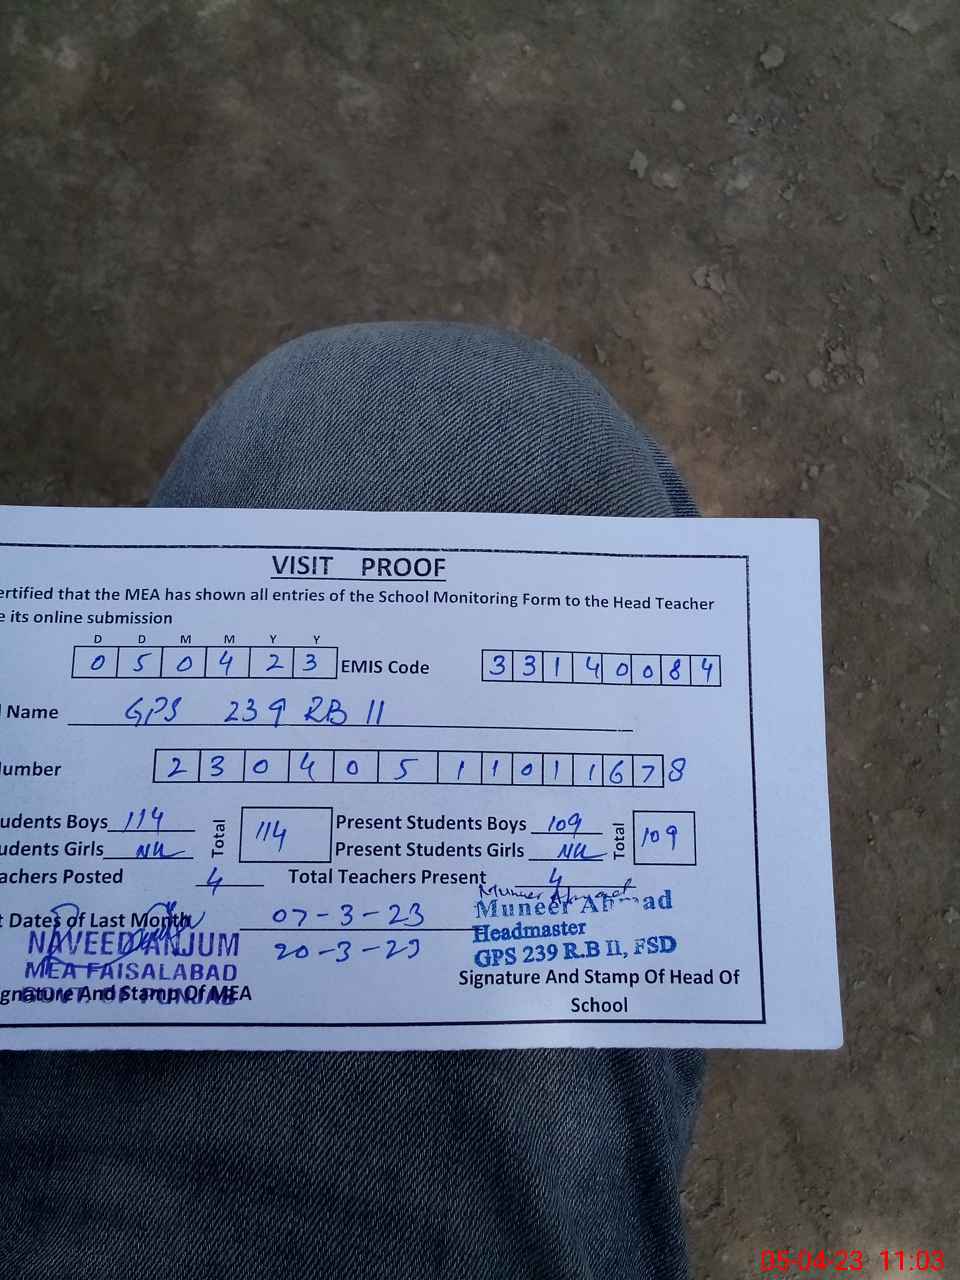 VISIT PROOF
ertified that the MEA has shown all entries of the School Monitoring Form to the Head Teacher
e its online submission
D D M M Y Y
0 5 0 4 2 3 EMIS Code 3 3 1 4 0 0 8 4
Name GPS 239 RB II
umber 2 3 0 4 0 5 1 1 0 1 1 6 7 8
udents Boys 114 Total 114 Present Students Boys 109 Total 109
udents Girls Nil Present Students Girls Nil
achers Posted 4 Total Teachers Present 4
Muneer Ahmad
t Dates of Last Month 07-3-23 Muneer Ahmad
NAVEED ANJUM 20-3-23 Headmaster
MEA FAISALABAD GPS 239 R.B II, FSD
GOVT. OF PUNJAB Signature And Stamp Of Head Of
gnature And Stamp Of MEA School
05-04-23 11:03